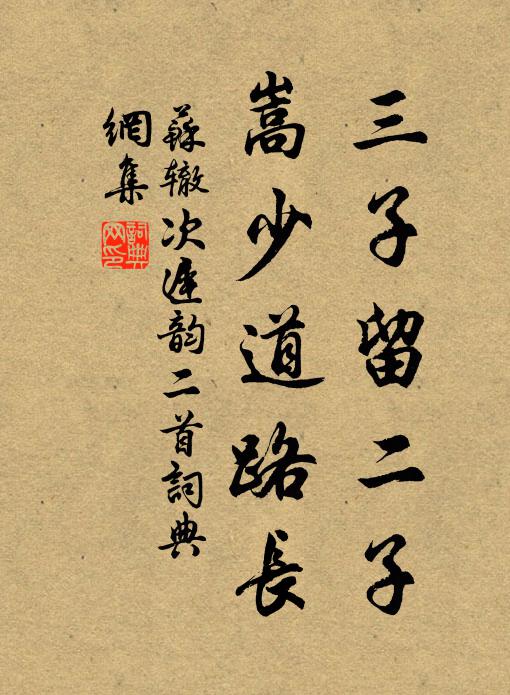 三子留二子
嵩少道路長
蘇辙次遲韵二首詞典
網集
詞典
网印